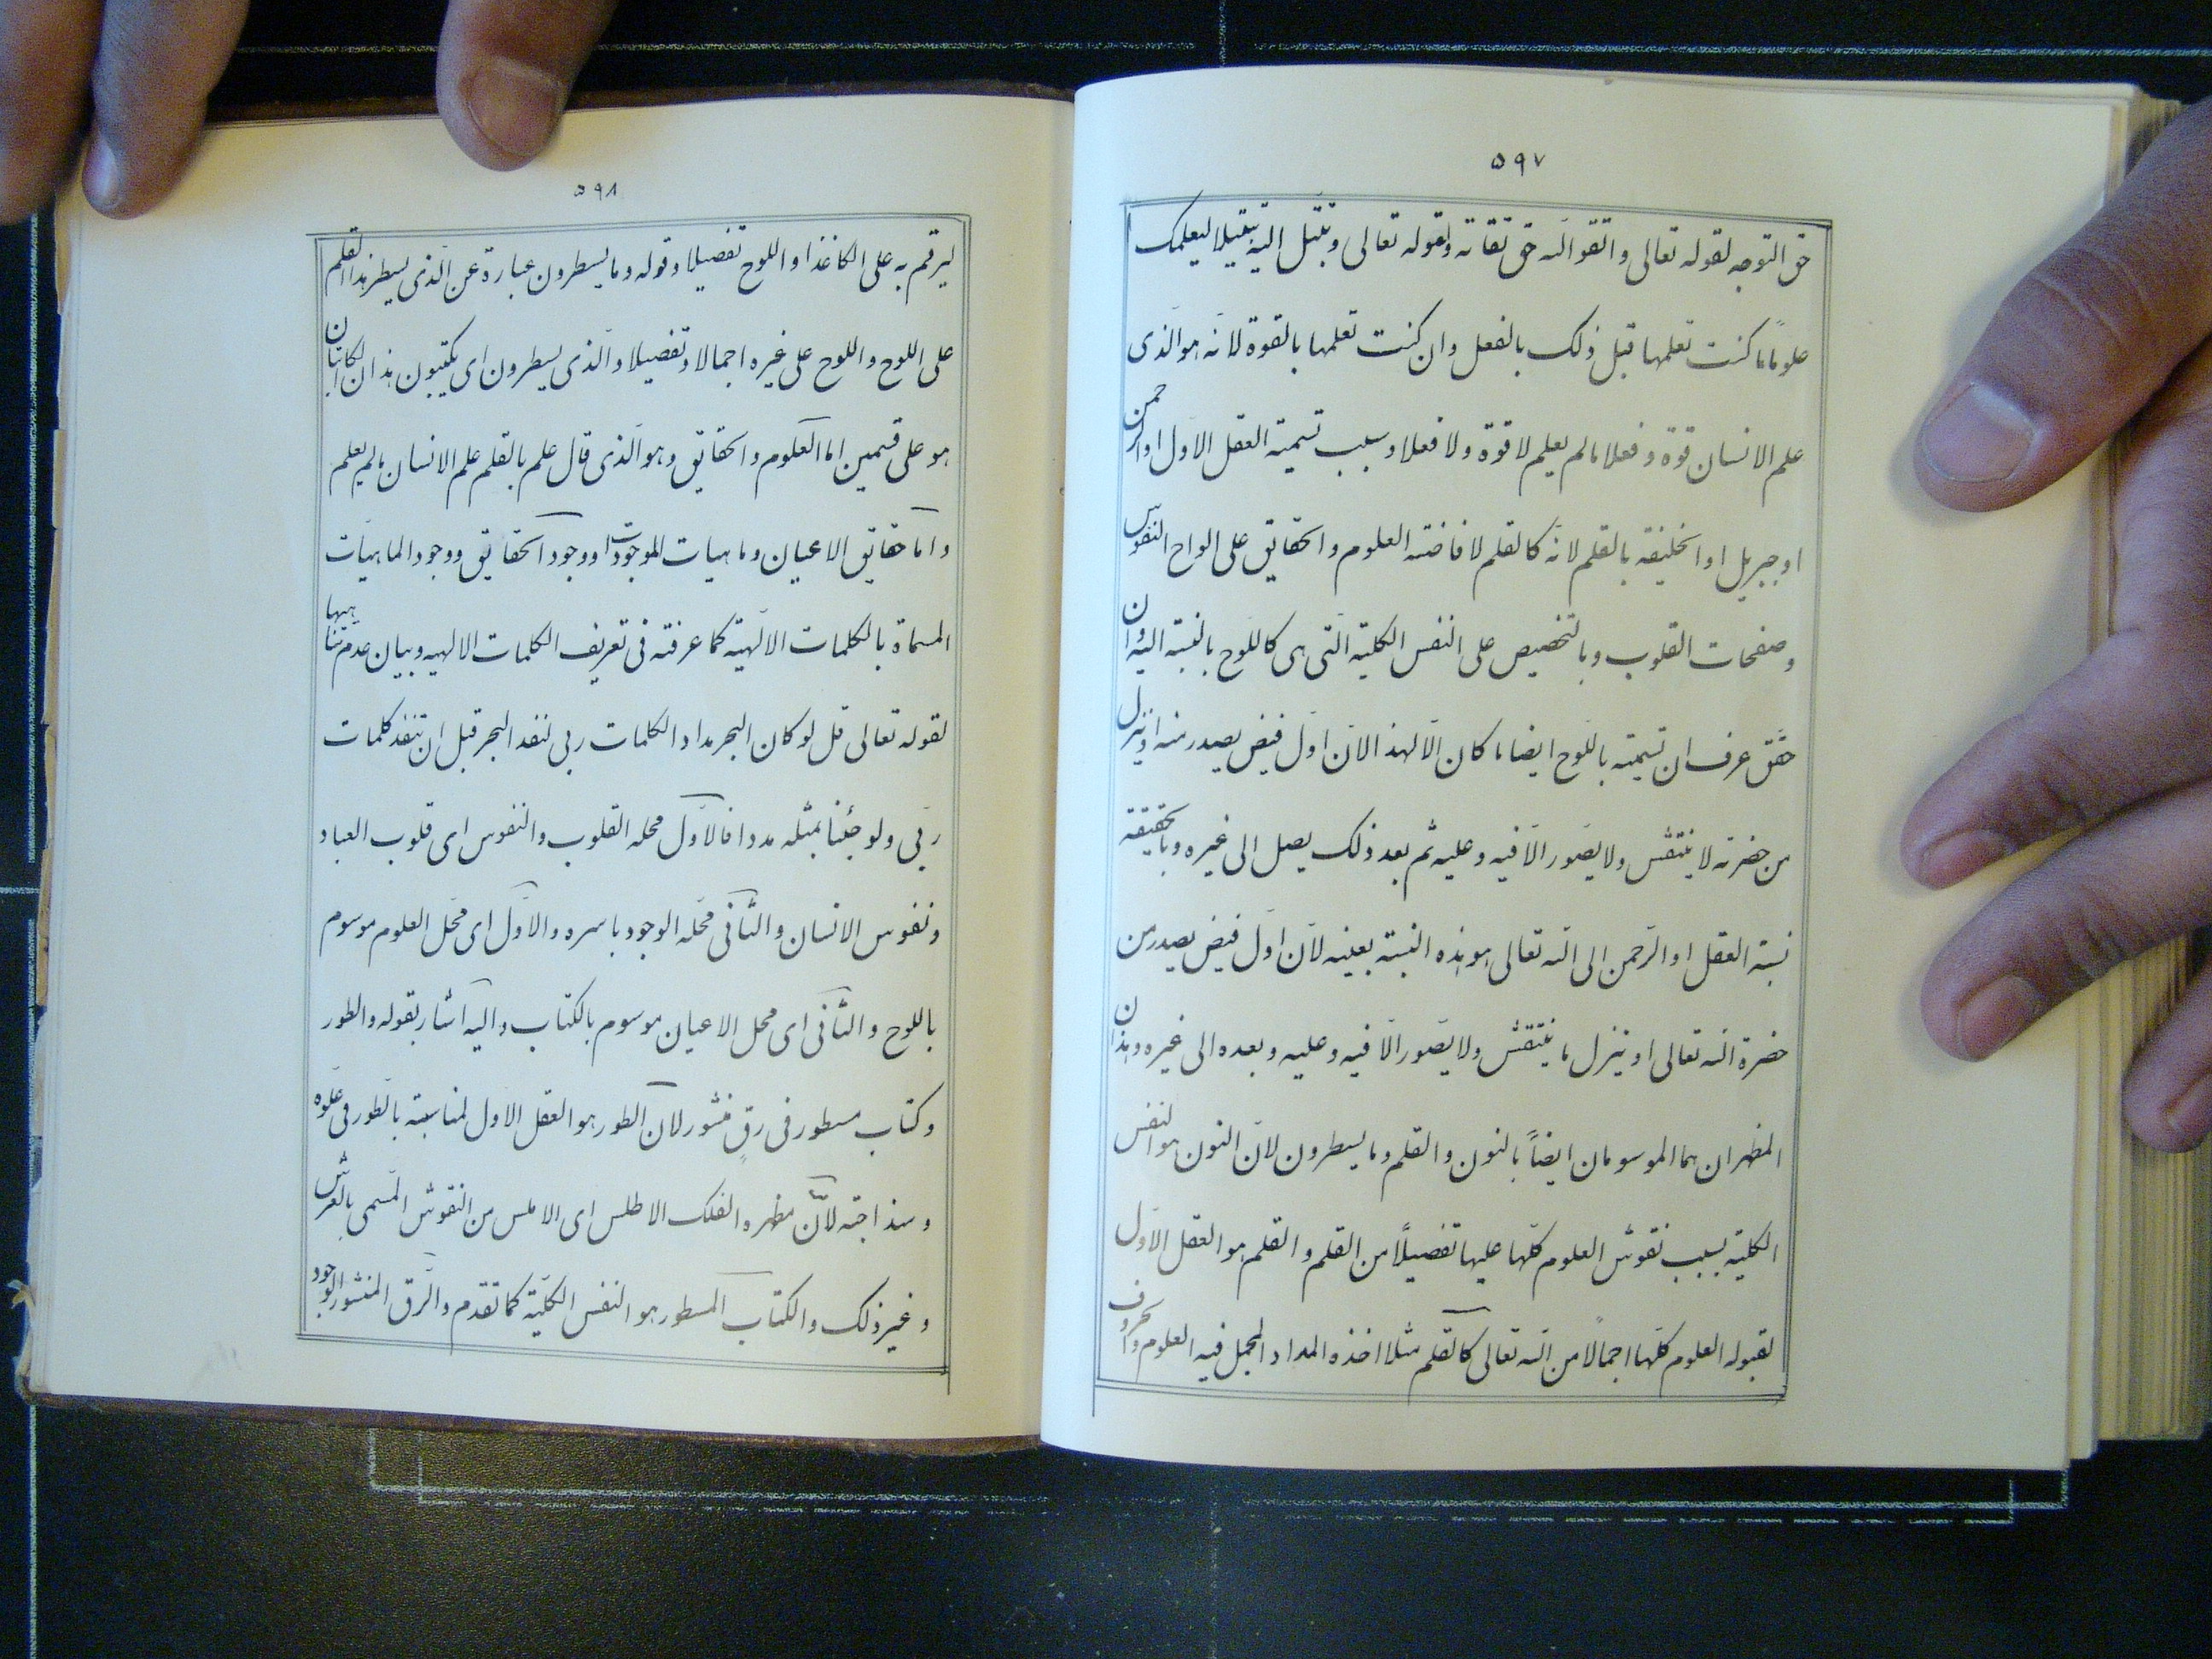 ٥٩٧
حق التوجه لقوله تعالى واتقوا الله حق تقاته ولقوله تعالى وتبتل اليه تبتيلا ليعلمك
علوماً ما كنت تعلمها قبل ذلك بالفعل وان كنت تعلمها بالقوة لانّه هو الّذى
علم الانسان قوة وفعلا ما لم يعلم لا قوة ولا فعلا وسبب تسمية العقل الاول او الرحمن
او جبريل او الخليفة بالقلم لانّه كالقلم لافاضته العلوم والحقايق على الواح النفوس
وصفحات القلوب وبالتخصيص على النفس الكلية الّتى هى كاللّوح بالنسبة اليه وان
حقّق عرف ان تسميته باللّوح ايضا ما كان الّا لهذا لانّ اوّل فيض يصدر منه او ينزل
من حضرته لا ينتقش ولا يصّور الّا فيه وعليه ثم بعد ذلك يصل الى غيره وبالحقيقة
نسبة العقل او الرّحمن الى الله تعالى هو هذه النسبة بعينه لانّ اوّل فيض يصدر من
حضرة الله تعالى او ينزل ما ينتقش ولا يصّور الّا فيه وعليه وبعده الى غيره وهذان
المظهران هما الموسومان ايضاً بالنون والقلم وما يسطرون لانّ النون هو النفس
الكلية بسبب نقوش العلوم كلّها عليها تفصيلاً من القلم والقلم هو العقل الاوّل
لقبوله العلوم كلّها اجمالاً من الله تعالى كالقلم مثلا اخذه المداد المجمل فيه العلوم والحروف
٥٩٨
ليرقم به على الكاغذ او اللوح تفصيلا وقوله وما يسطرون عبارة عن الّذى يسطر هذا القلم
على اللوح واللوح على غيره اجمالا وتفصيلا والّذى يسطرون اى يكتبون هذان الكاتبان
هو على قسمين اما العلوم والحقايق وهو الّذى قال علم بالقلم علم الانسان ما لم يعلم
وامّا حقايق الاعيان وماهيات الموجودات او وجود الحقايق ووجود الماهيّات
المسماة بالكلمات الالهية كما عرفته فى تعريف الكلمات الالهيه وبيان عدم تناهيها
لقوله تعالى قل لو كان البحر مدادا لكلمات ربى لنفد البحر قبل ان تنفد كلمات
ربّى ولو جئنا بمثله مددا فالاوّل محله القلوب والنفوس اى قلوب العباد
ونفوس الانسان والثّانى محّله الوجود باسره والاوّل اى محّل العلوم موسوم
باللوح والثانى اى محل الاعيان موسوم بالكتاب واليه اشار بقوله والطور
وكتاب مسطور فى رقٍ منشور لان الطور هو العقل الاول لمناسبته بالطور فى علّوه
وسذاجته لانّ مظهره الفلك الاطلس اى الاملس من النقوش المسّمى بالعرش
وغير ذلك والكتاب المسطور هو النفس الكلّية كما تقدم والرّق المنشور الوجود